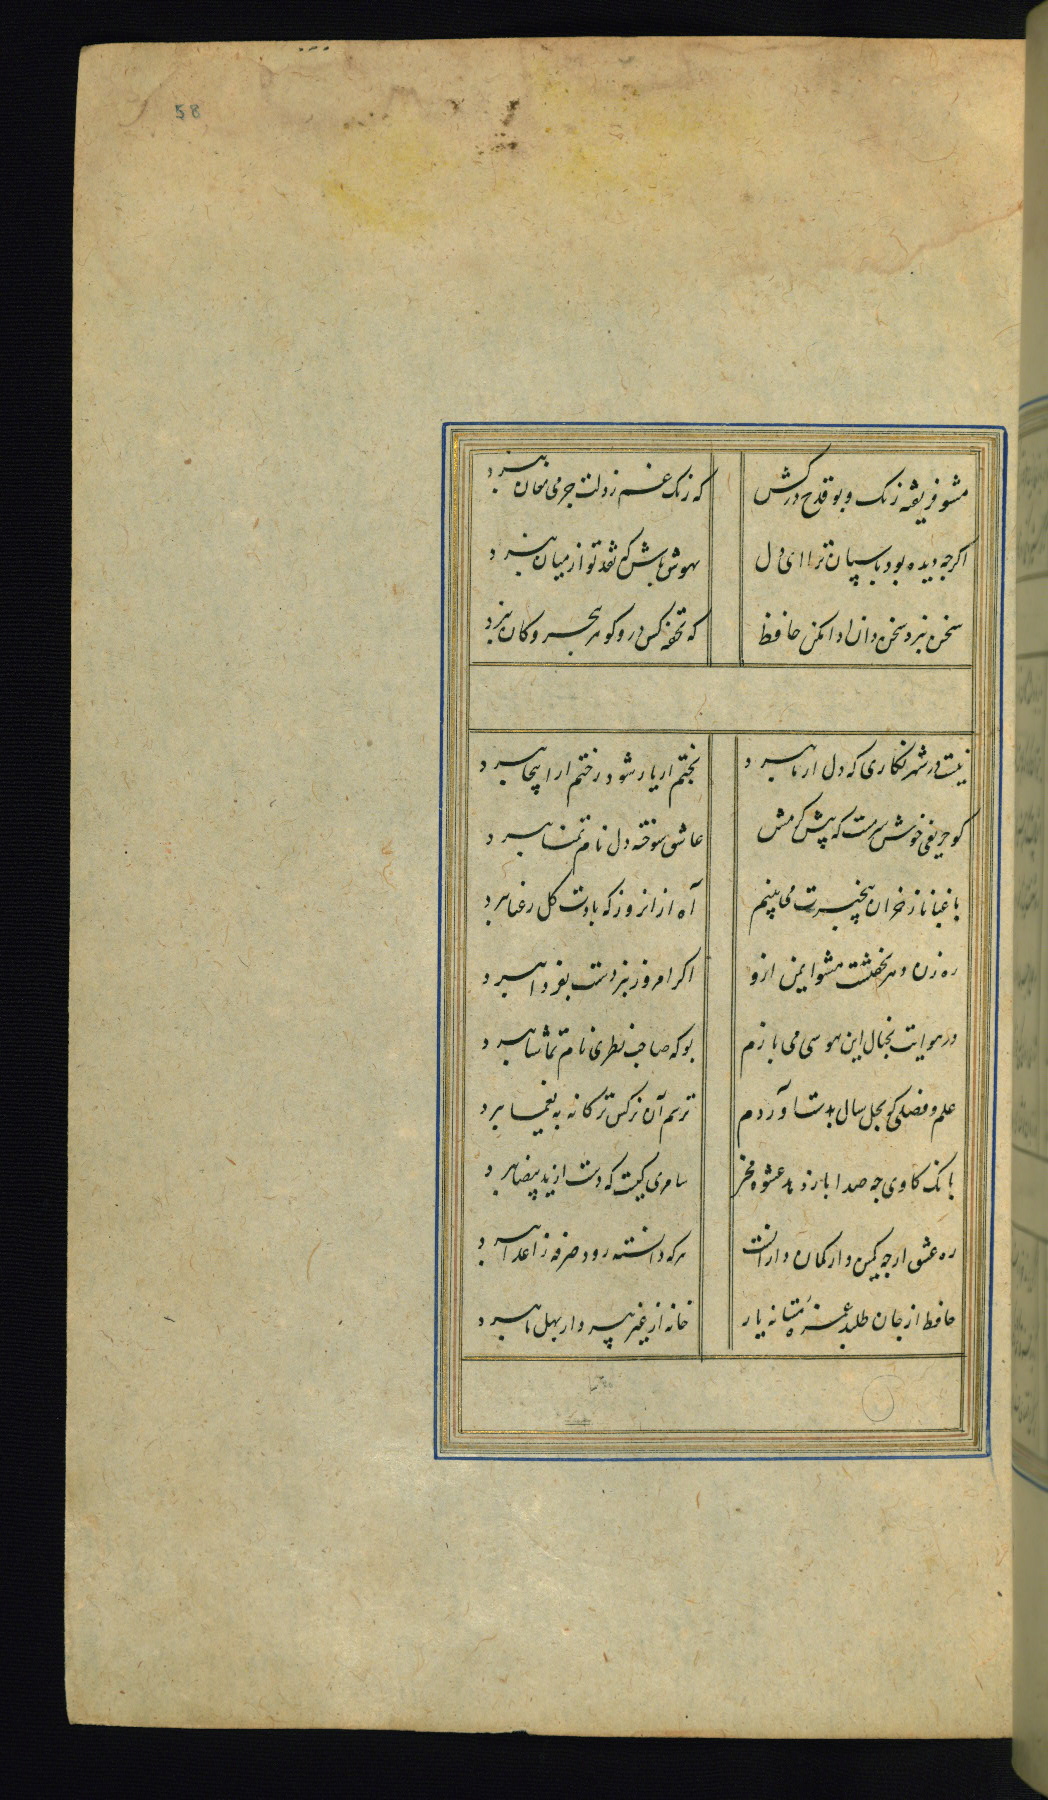 58
مشو فریفته رنک و بو قدح درکش
که زنک غم ز دلت جز می مغان نبرد
اکرچه دیده بود پاسبان ترا ای دل
بهوش باش که نقد تو از میان نبرد
سخن نبرد سخن دان ادا مکن حافظ
که تحفه کس در و کوهر ببحر و کان نبرد
نیست در شهر نکاری که دل از ما ببرد
بختم ار یار شود رختم از اینجا ببرد
کو حریفی خوش سرمست که پیش کرمش
عاشق سوخته دل نام تمنا ببرد
باغبانا ز خزان بیخبرت می بینم
آه از انروز که بادت کل رعنا ببرد
ره زن دهر نخفتست مشو ایمن ازو
اکر امروز نبردست بفردا ببرد
در
این هوسی می بازم
بو که صاحب نظری نام تماشا ببرد
علم و فضلی که بچل سال بدست آوردم
ترسم آن نرکس ترکانه به یغما ببرد
بانک کاوی چه صدا باز دهد عشوه مخر
سامری کیست که دست از ید بیضا ببرد
ره عشق ارچه کمین دار کمان دارانست
هرکه دانسته رود صرفه ز اعدا ببرد
حافظ ار جان طلبد غمزه مستانه یار
خانه از غیر بپرداز و بهل تا ببرد